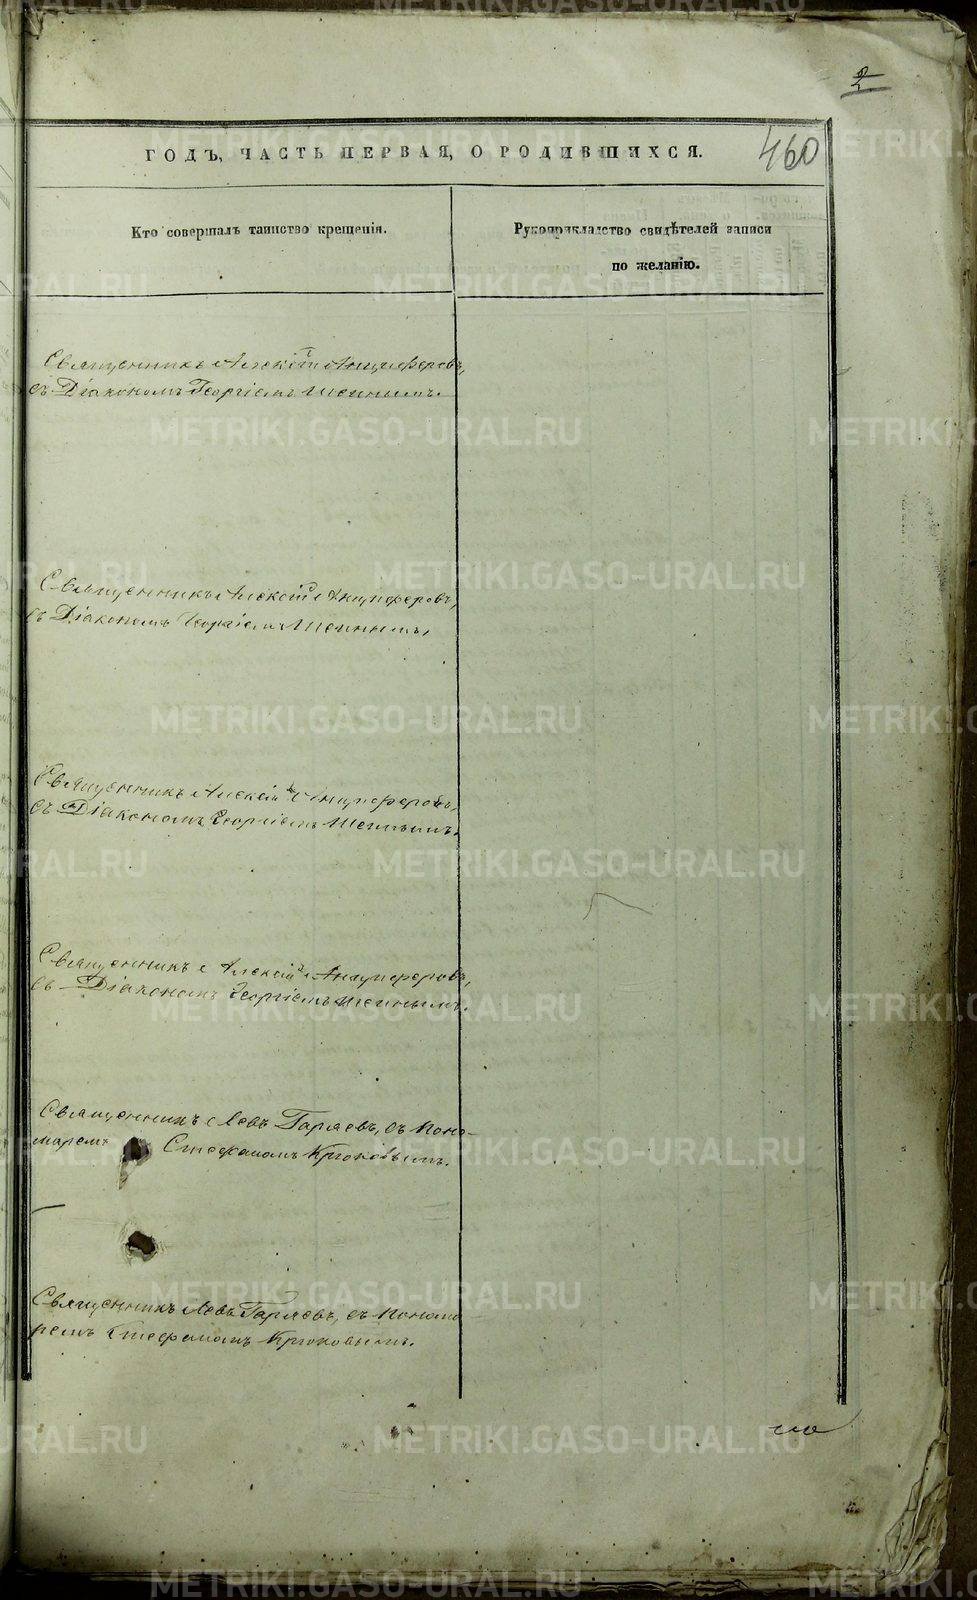 2
ГОДЪ, ЧАСТЬ ПЕРВАЯ, О РОДИВШИХСЯ.
460
Кто совершалъ таинство крещенія.
Рукоприкладство свидѣтелей записи
по желанію.
Священникъ Алексій Анциферовъ,
съ Діакономъ Георгіемъ Шеинымъ.
Священникъ Алексій Анциферовъ,
съ Діакономъ Георгіемъ Шеинымъ,
Священникъ Алексій Анциферовъ,
съ Діакономъ Георгіемъ Шеинымъ.
Священникъ Алексій Анциферовъ,
съ Діакономъ Георгіемъ Шеинымъ.
Священникъ Левъ Гаряевъ, съ Поно-
маремъ Стефаномъ Крюковымъ.
Священникъ Левъ Гаряевъ, съ Понома
ремъ Стефаномъ Крюковымъ.
METRIKI.GASO-URAL.RU